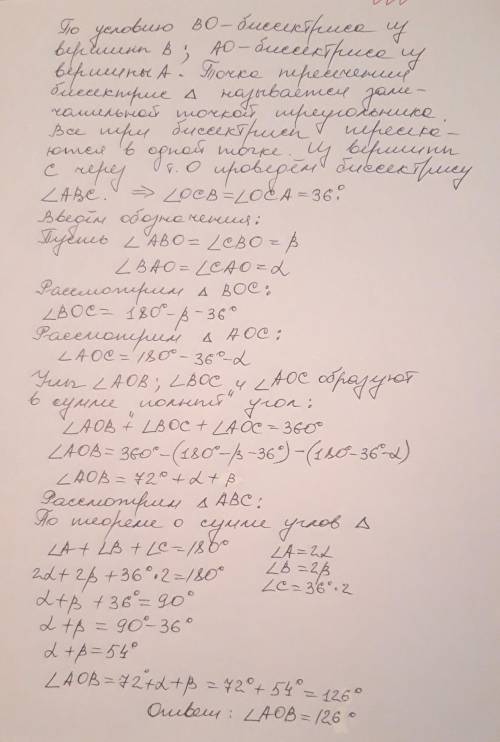 По условию BO-биссектриса из
вершины B; AO-биссектриса из
вершины A. Точка пересечения
биссектрис Δ называется заме-
чательной точкой треугольника.
Все три биссектрисы пересека-
ются в одной точке. Из вершины
C через т. O проведём биссектрису
∠ABC. ⇒ ∠OCB=∠OCA=36°.
Введём обозначения:
Пусть ∠ABO=∠CBO=β
∠BAO=∠CAO=α
Рассмотрим Δ BOC:
∠BOC= 180°-β-36°
Рассмотрим Δ AOC:
∠AOC=180°-36°-α
Углы ∠AOB; ∠BOC и ∠AOC образуют
в сумме "полный" угол:
∠AOB+∠BOC+∠AOC=360°
∠AOB=360°-(180°-β-36°)-(180°-36°-α)
∠AOB=72°+α+β
Рассмотрим Δ ABC:
По теореме о сумме углов Δ
∠A+∠B+∠C=180° ∠A=2α
2α+2β+36°·2=180° ∠B=2β
α+β+36°=90° ∠C=36°·2
α+β=90°-36°
α+β=54°
∠AOB=72°+α+β=72°+54°=126°
Ответ: ∠AOB=126°